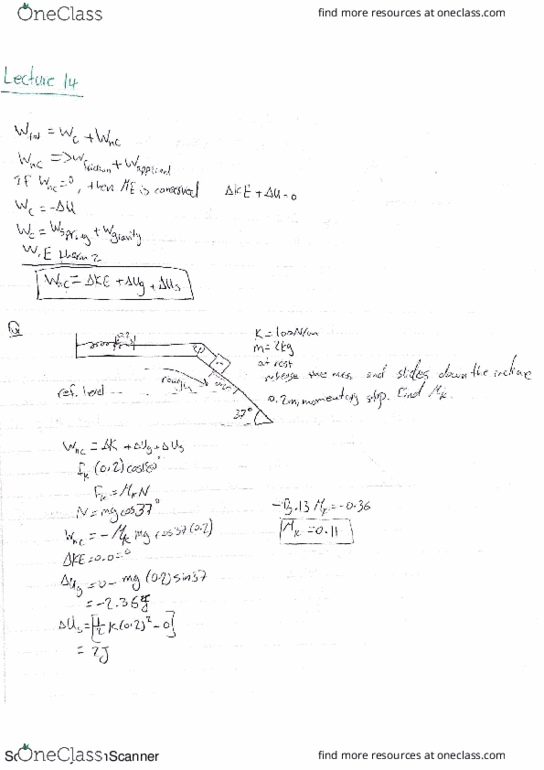 OneClass
find more resources at oneclass.com
Lecture 14
Wtot = Wc + Wnc
Wnc => Wfriction + Wapplied
If Wnc=0, then ME is conserved ΔKE + ΔU = 0
Wc = -ΔU
Wc = Wspring + Wgravity
W.E therm 2
Wnc = ΔKE + ΔUg + ΔUs
Q
K = 100N/m
m = 2kg
at rest
release the mass and slides down the incline
0.2m, momentarily stop. Find Mk.
rough
0.2m
ref. level
37°
Wnc = ΔK + ΔUg + ΔUs
fk (0.2) cos180°
Fk = MkN
N = mg cos37°
Wnc = -Mk mg cos37(0.2)
ΔKE = 0-0 = 0
ΔUg = 0 - mg(0.2) sin37
= -2.36J
ΔUs = [½ K(0.2)² - 0]
= 2J
-3.13 Mk = -0.36
Mk = 0.11
OneClass
Scanner
find more resources at oneclass.com